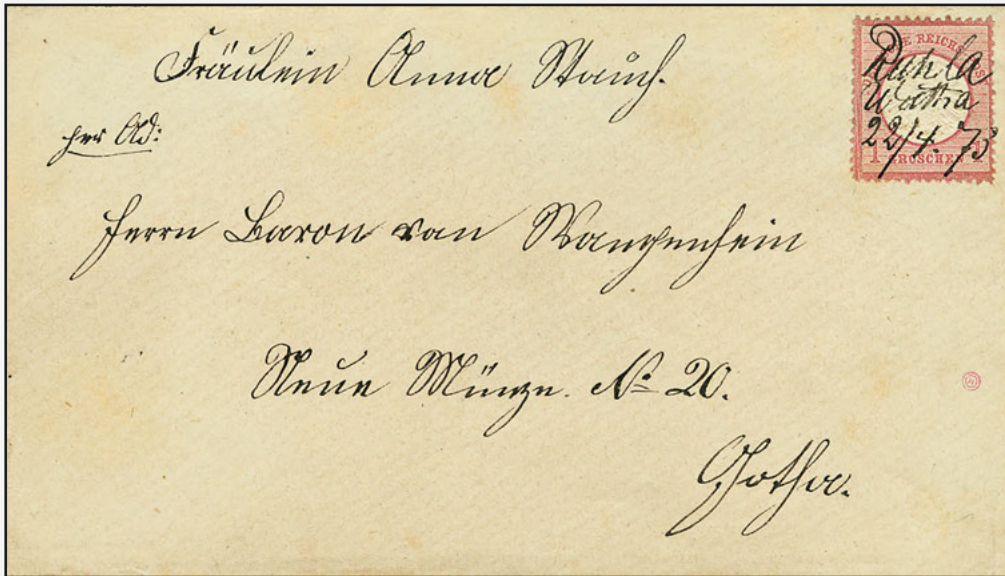 Fräulein Anna Stauch.
per Ad:
Herrn Baron von Wangenheim
Neue Münze. No 20.
Gotha.
Ruhla
Wutha
22/4. 73
1 GROSCHEN 1